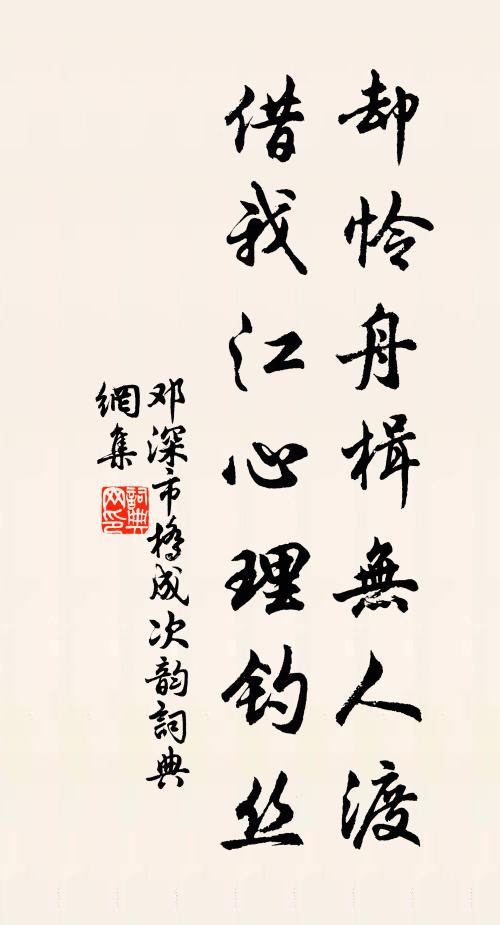 却怜舟楫無人渡
借我江心理钓丝
邓深市橋成次韵詞典
網集
詞典
网印